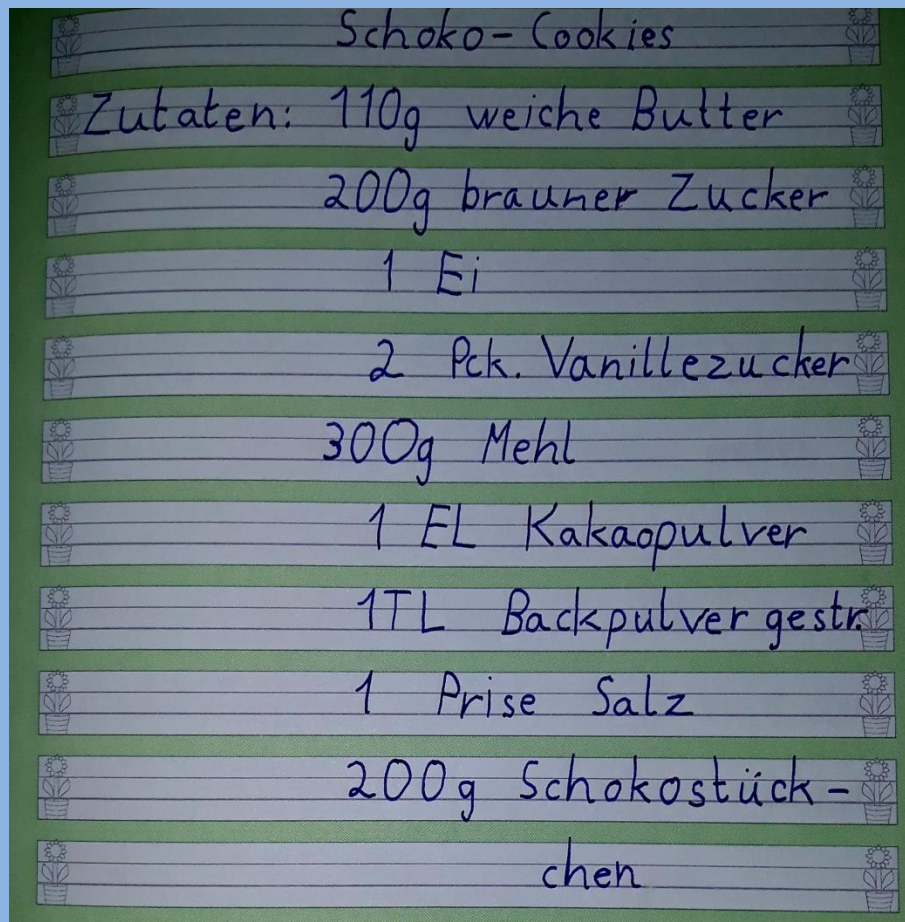 Schoko-Cookies
Zutaten: 110g weiche Butter
200g brauner Zucker
1 Ei
2 Pck. Vanillezucker
300g Mehl
1 EL Kakaopulver
1TL Backpulver gestr.
1 Prise Salz
200g Schokostück-
chen